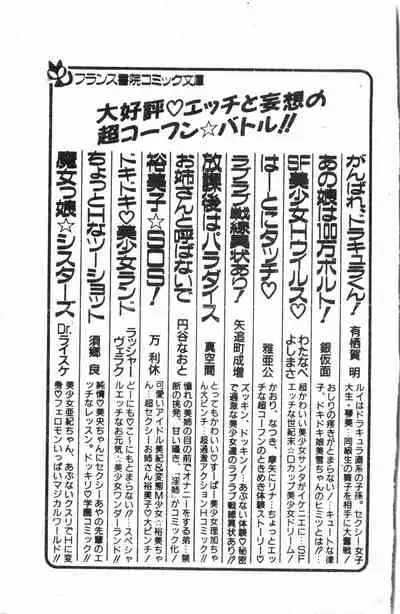 フランス書院コミック文庫
大好評♡エッチと妄想の
超コーフン☆バトル!!
がんばれ、ドラキュラくん! 有栖賀 明
ルイはドラキュラ直系の子孫。セクシー女子
大生・琴美、同級生の舞子を相手に大奮戦!
あの娘は100万ボルト! 銀仮面
おしりの疼きがとまらない!キュートな律
子、ドキドキ娘美雪ちゃんのヒミツとは!?
SF美少女Hウイルス♡ わたなべよしまさ
超かわいい美少女サンタがイケニエに…SF
エッチな世紀末☆Dカップ美少女ドリーム!
はーとにタッチ♡ 雅亜公
かおり、なつき、摩矢にリナ…ちょっとエッ
チな超コーフンのときめき体験ストーリー♡
ラブラブ戦線異状あり! 矢追町成増
ズッキン、ドッキン!…あぶない体験♡秘密
で過激な美少女達のラブラブ戦線異状あり!?
放課後はパラダイス 真空間
とってもかわいい♡すーぱー美少女理加ちゃ
ん大ピンチ!超過激アクションHコミック!!
お姉さんと呼ばないで 円谷なおと
憧れの美姉の目の前でオナニーをする弟…禁
断の挑発、甘い囁き、「淫姉」がコミック化!
裕美子☆SOS! 万 利休
可愛いアイドル美紀&変態M少女☆裕美ちゃ
ん、超セクシーお姉さん裕美子♡大ピンチ!
ドキドキ♡美少女ランド ラッシャーヴェラク
どーにも♡こーにもとまらない!?…スペシャ
ルエッチなお元気☆美少女ワンダーランド!!
ちょっとHなツーショット 須郷 良
純情♡美央ちゃんにセクシーあやの先輩のエ
ッチなレッスン。ドッキリ♡学園コミック!!
魔女っ娘☆シスターズ Dr.ライスケ
美少女亜紀ちゃん、あぶないクスリでHに変
身♡フェロモンいっぱいマジカルワールド!!